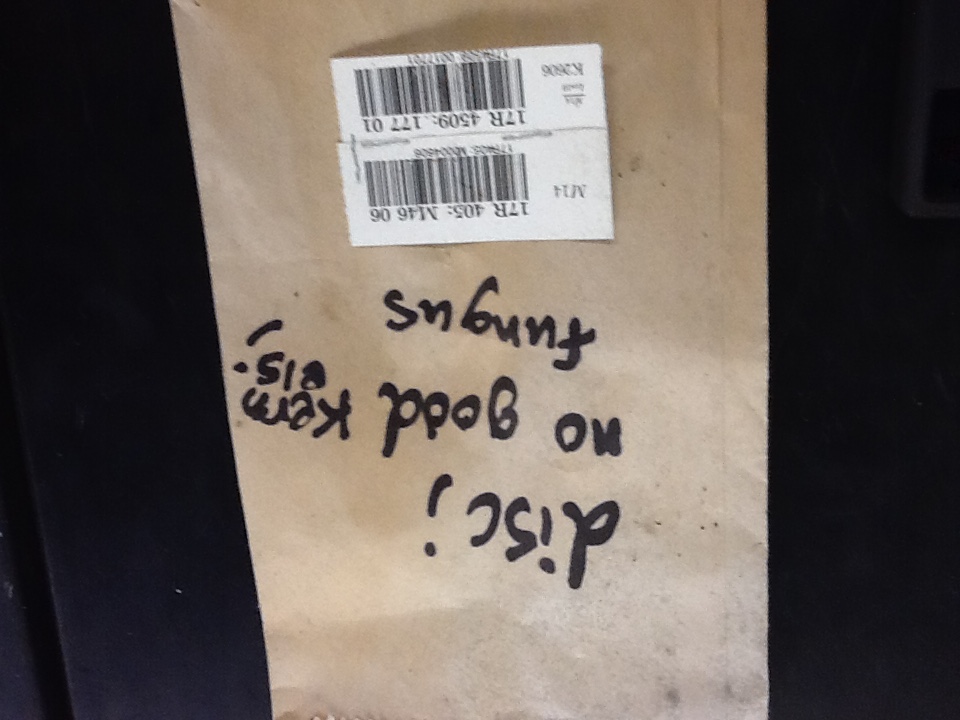 disc;
no good Kern
els;
fungus
17R 405: M46 06
M14
17R405: M0004606
17R 4509: 177 01
K2606
17R4509: 0017701